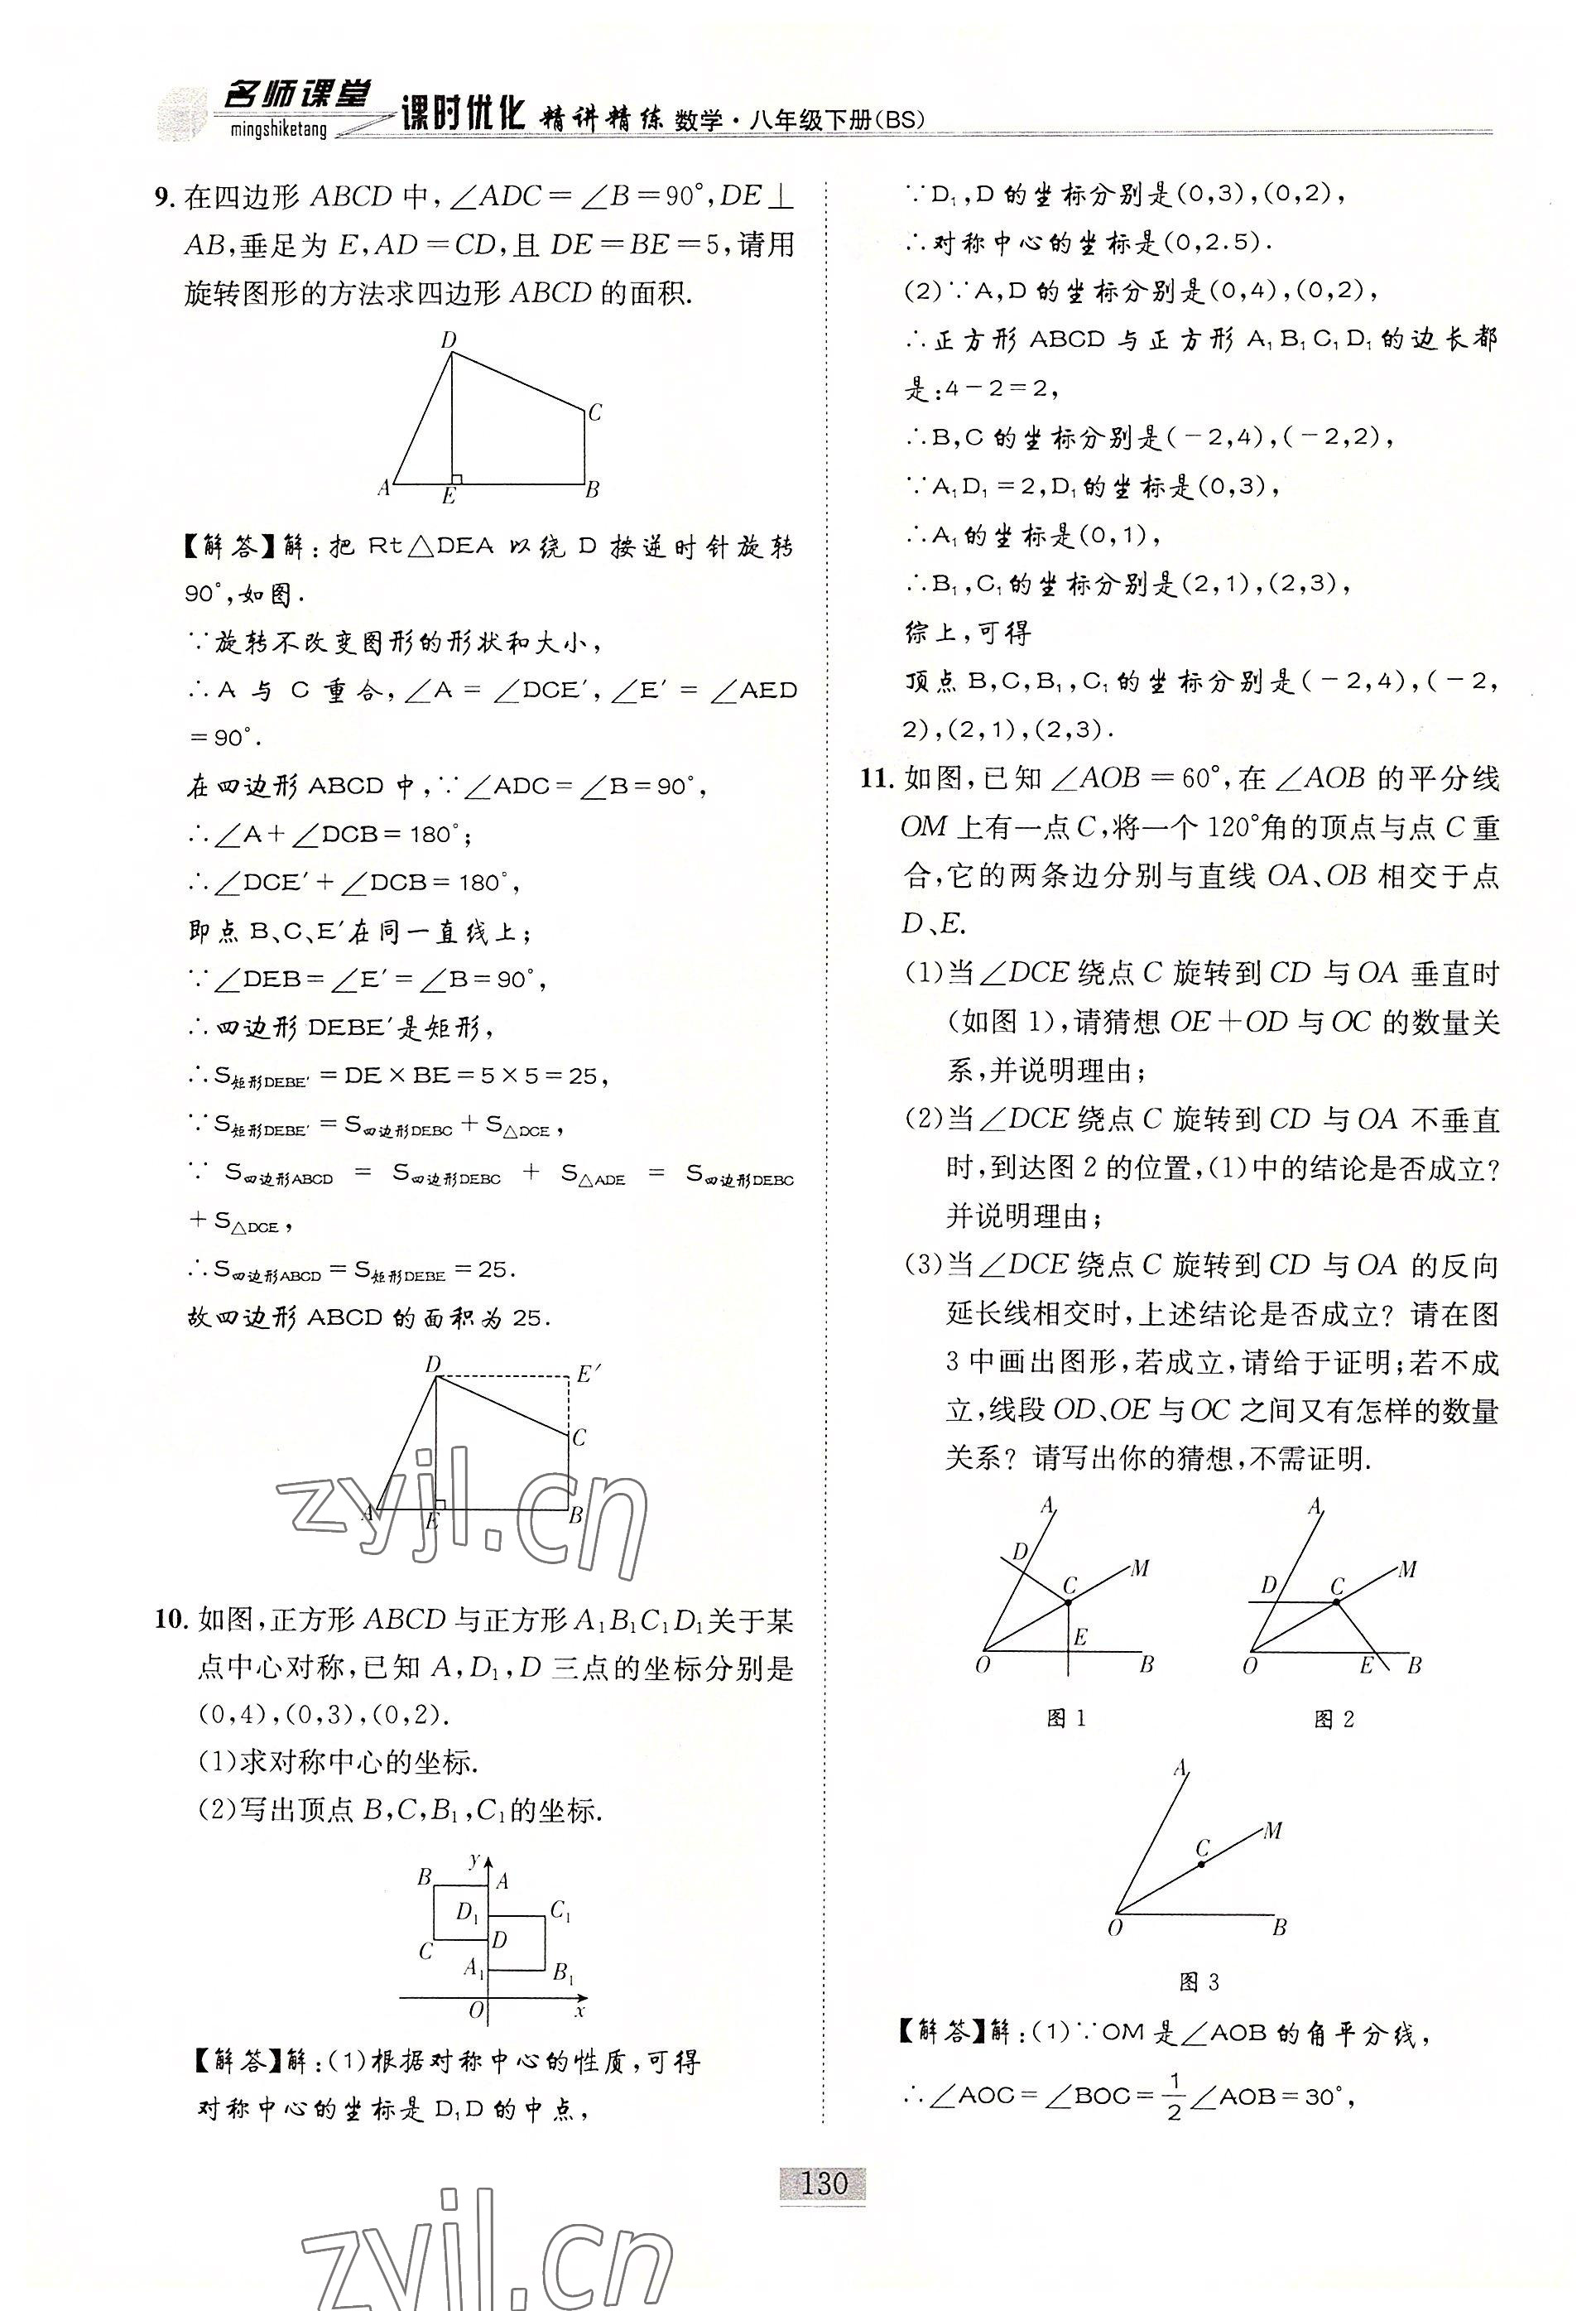 名师课堂
mingshiketang
课时优化 精讲精练 数学·八年级下册(BS)
9. 在四边形 ABCD 中,∠ADC=∠B=90°,DE⊥
AB,垂足为 E,AD=CD,且 DE=BE=5,请用
旋转图形的方法求四边形 ABCD 的面积.
D
C
A
E
B
【解答】解:把 Rt△DEA 以绕 D 按逆时针旋转
90°,如图.
∵旋转不改变图形的形状和大小,
∴A 与 C 重合,∠A=∠DCE′,∠E′=∠AED
=90°.
在四边形 ABCD 中,∵∠ADC=∠B=90°,
∴∠A+∠DCB=180°;
∴∠DCE′+∠DCB=180°,
即点 B、C、E′在同一直线上;
∵∠DEB=∠E′=∠B=90°,
∴四边形 DEBE′是矩形,
∴S矩形DEBE′=DE×BE=5×5=25,
∵S矩形DEBE′=S四边形DEBC+S△DCE,
∵ S四边形ABCD = S四边形DEBC + S△ADE = S四边形DEBC
+S△DCE,
∴S四边形ABCD=S矩形DEBE=25.
故四边形 ABCD 的面积为 25.
D
E′
C
A
E
B
zyjl.cn
10. 如图,正方形 ABCD 与正方形 A₁B₁C₁D₁关于某
点中心对称,已知 A,D₁,D 三点的坐标分别是
(0,4),(0,3),(0,2).
(1)求对称中心的坐标.
(2)写出顶点 B,C,B₁,C₁的坐标.
y
B
A
D₁
C₁
C
D
A₁
B₁
O
x
【解答】解:(1)根据对称中心的性质,可得
对称中心的坐标是 D₁D 的中点,
∵D₁,D 的坐标分别是(0,3),(0,2),
∴对称中心的坐标是(0,2.5).
(2)∵A,D 的坐标分别是(0,4),(0,2),
∴正方形 ABCD 与正方形 A₁B₁C₁D₁的边长都
是:4-2=2,
∴B,C 的坐标分别是(-2,4),(-2,2),
∵A₁D₁=2,D₁的坐标是(0,3),
∴A₁的坐标是(0,1),
∴B₁,C₁的坐标分别是(2,1),(2,3),
综上,可得
顶点 B,C,B₁,C₁的坐标分别是(-2,4),(-2,
2),(2,1),(2,3).
11. 如图,已知∠AOB=60°,在∠AOB 的平分线
OM 上有一点 C,将一个 120°角的顶点与点 C 重
合,它的两条边分别与直线 OA、OB 相交于点
D、E.
(1)当∠DCE 绕点 C 旋转到 CD 与 OA 垂直时
(如图 1),请猜想 OE+OD 与 OC 的数量关
系,并说明理由;
(2)当∠DCE 绕点 C 旋转到 CD 与 OA 不垂直
时,到达图 2 的位置,(1)中的结论是否成立?
并说明理由;
(3)当∠DCE 绕点 C 旋转到 CD 与 OA 的反向
延长线相交时,上述结论是否成立? 请在图
3 中画出图形,若成立,请给于证明;若不成
立,线段 OD、OE 与 OC 之间又有怎样的数量
关系? 请写出你的猜想,不需证明.
A
D
C
M
E
O
B
图 1
A
D
C
M
O
E
B
图 2
A
C
M
O
B
图 3
【解答】解:(1)∵OM 是∠AOB 的角平分线,
∴∠AOC=∠BOC=1/2∠AOB=30°,
130
zyjl.cn